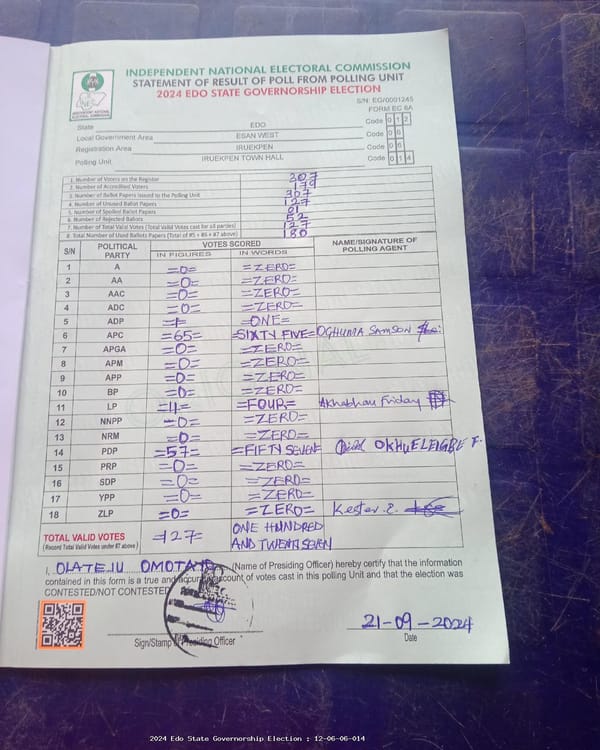 INDEPENDENT NATIONAL ELECTORAL COMMISSION
STATEMENT OF RESULT OF POLL FROM POLLING UNIT
2024 EDO STATE GOVERNORSHIP ELECTION
S/N: EG/0001245
FORM EC 8A
State EDO Code 0 1 2
Local Government Area ESAN WEST Code 0 6
Registration Area IRUEKPEN Code 0 6
Polling Unit IRUEKPEN TOWN HALL Code 0 1 4
1. Number of Voters on the Register 307
2. Number of Accredited Voters 179
3. Number of Ballot Papers Issued to the Polling Unit 307
4. Number of Unused Ballot Papers 127
5. Number of Spoiled Ballot Papers 01
6. Number of Rejected Ballots 52
7. Number of Total Valid Votes (Total Valid Votes cast for all parties) 127
8. Total Number of Used Ballot Papers (Total of #5 + #6 + #7 above) 180
S/N POLITICAL PARTY VOTES SCORED NAME/SIGNATURE OF POLLING AGENT
IN FIGURES IN WORDS
1 A =0= =ZERO=
2 AA =0= =ZERO=
3 AAC =0= =ZERO=
4 ADC =0= =ZERO=
5 ADP =1= =ONE=
6 APC =65= =SIXTY FIVE= OGHUMA SAMSON
7 APGA =0= =ZERO=
8 APM =0= =ZERO=
9 APP =0= =ZERO=
10 BP =0= =ZERO=
11 LP =4= =FOUR= Akhabhau Friday
12 NNPP =0= =ZERO=
13 NRM =0= =ZERO=
14 PDP =57= =FIFTY SEVEN= OKHUELEIGBE F.
15 PRP =0= =ZERO=
16 SDP =0= =ZERO=
17 YPP =0= =ZERO=
18 ZLP =0= =ZERO= Kester E.
TOTAL VALID VOTES =127= ONE HUNDRED
(Record Total Valid Votes under #7 above) AND TWENTY SEVEN
I, OLATEJU OMOTAYO (Name of Presiding Officer) hereby certify that the information
contained in this form is a true and accurate account of votes cast in this polling Unit and that the election was
CONTESTED/NOT CONTESTED
21-09-2024
Sign/Stamp of Presiding Officer Date
2024 Edo State Governorship Election : 12-06-06-014